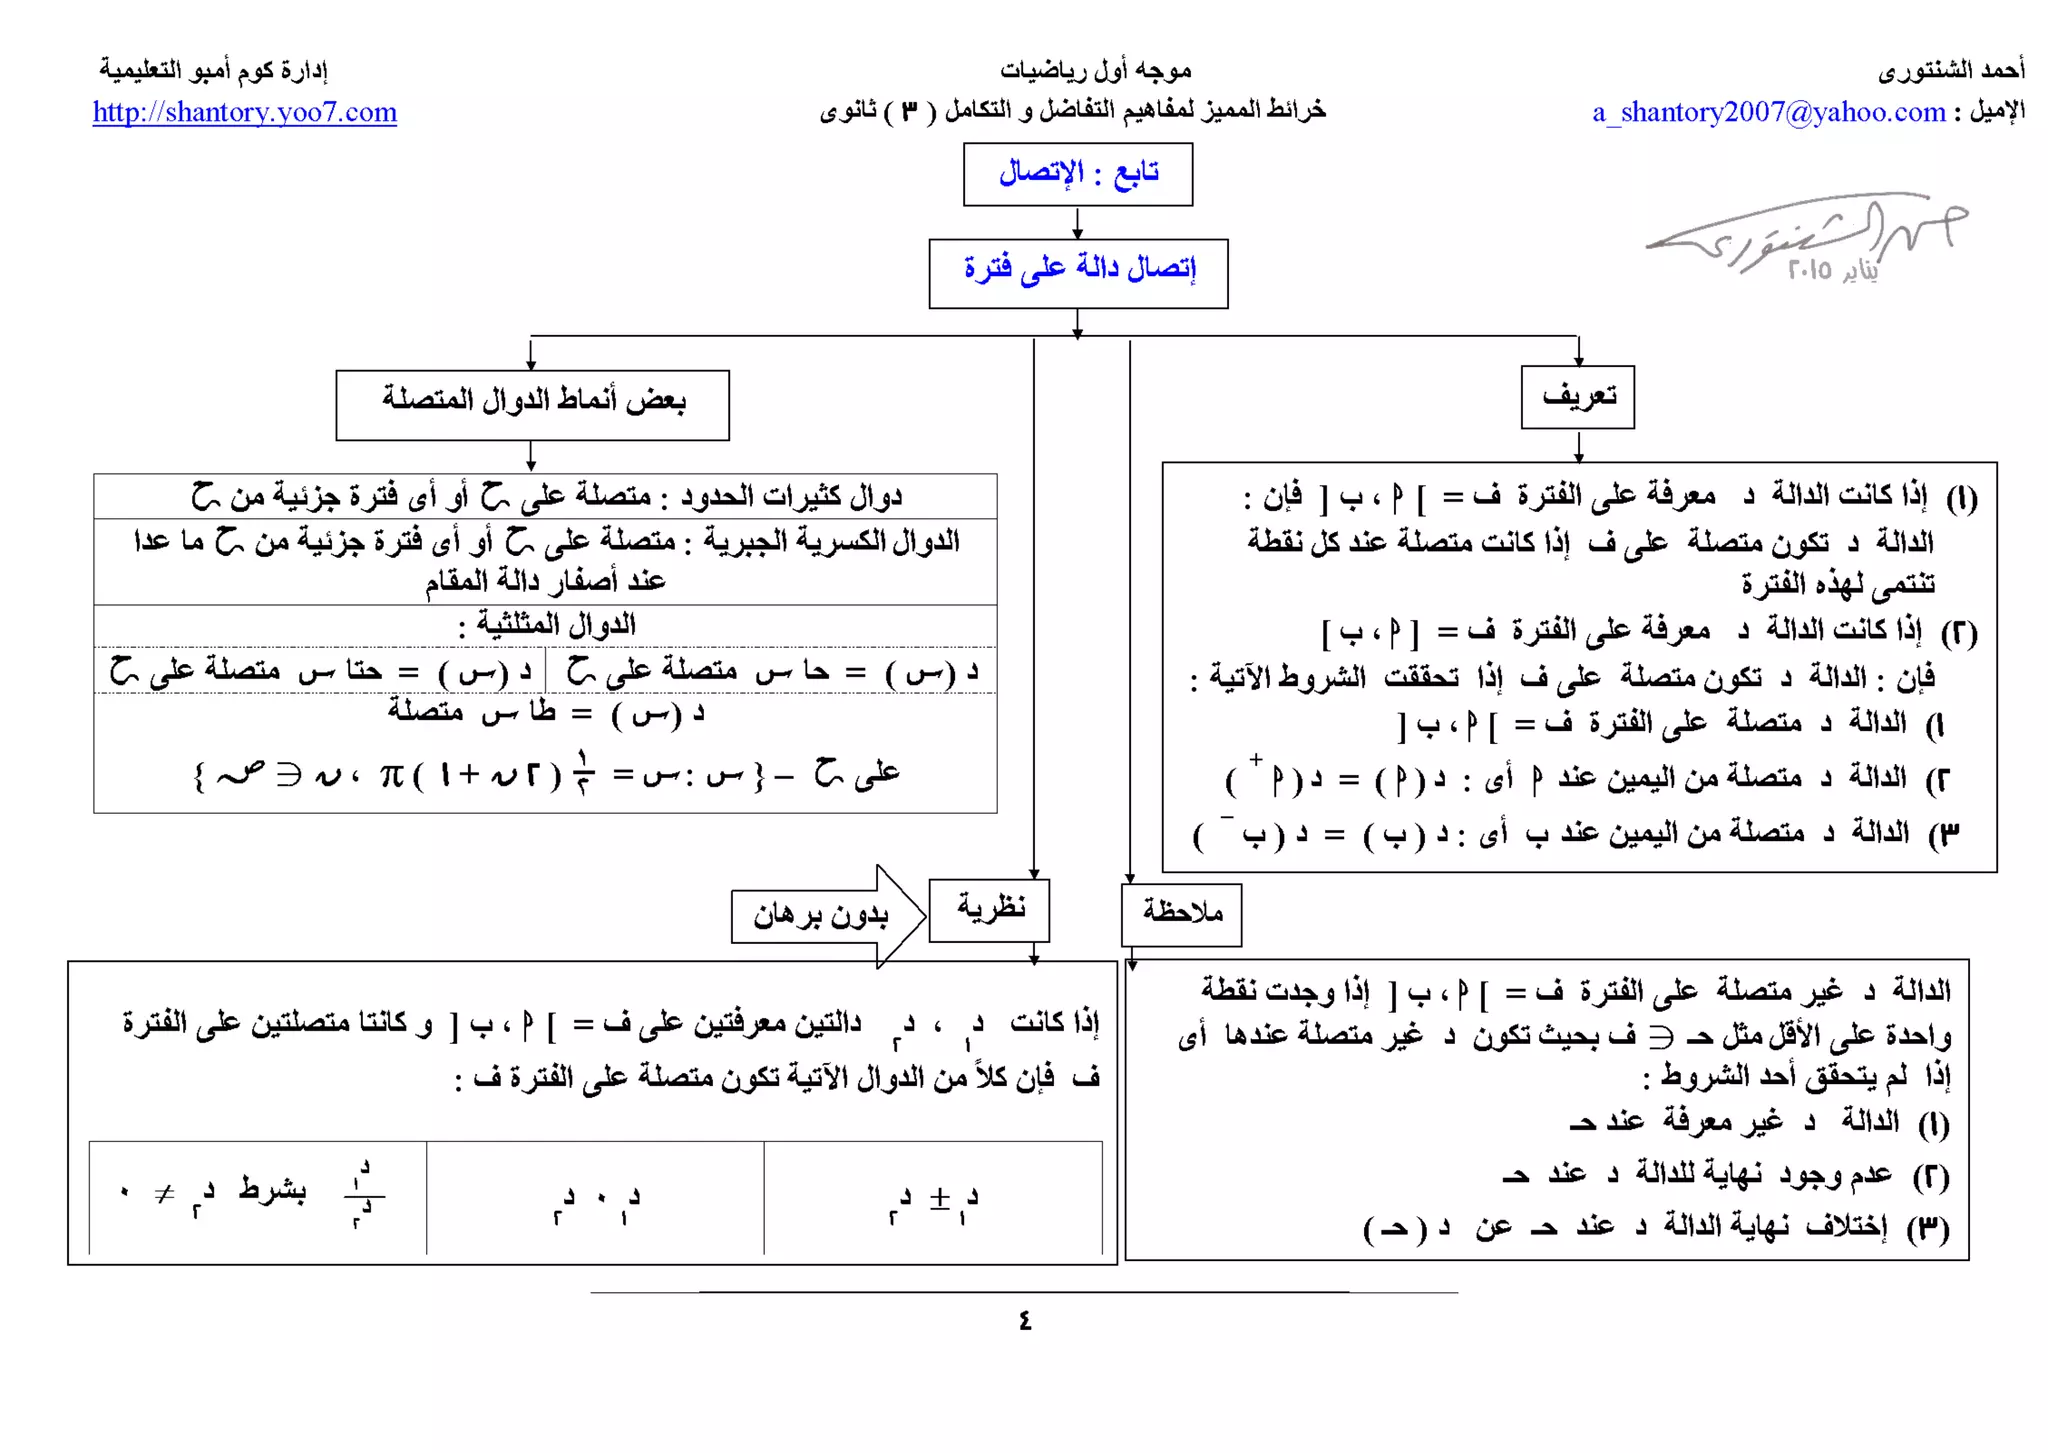 أحمد الشنتورى
موجه أول رياضيات
إدارة كوم أمبو التعليمية
الإميل : a_shantory2007@yahoo.com
خرائط المميز لمفاهيم التفاضل و التكامل ( ٣ ) ثانوى
http://shantory.yoo7.com
تابع : الإتصال
أحمد الشنتورى
يناير ٢٠١٥
إتصال دالة على فترة
تعريف
(١) إذا كانت الدالة د معرفة على الفترة ف = ] ﺍ ، ب [ فإن :
الدالة د تكون متصلة على ف إذا كانت متصلة عند كل نقطة
تنتمى لهذه الفترة
(٢) إذا كانت الدالة د معرفة على الفترة ف = [ ﺍ ، ب ]
فإن : الدالة د تكون متصلة على ف إذا تحققت الشروط الآتية :
١) الدالة د متصلة على الفترة ف = ] ﺍ ، ب [
٢) الدالة د متصلة من اليمين عند ﺍ أى : د ( ﺍ ) = د ( ﺍ ⁺ )
٣) الدالة د متصلة من اليمين عند ب أى : د ( ب ) = د ( ب ⁻ )
بعض أنماط الدوال المتصلة
دوال كثيرات الحدود : متصلة على ح أو أى فترة جزئية من ح
الدوال الكسرية الجبرية : متصلة على ح أو أى فترة جزئية من ح ما عدا
عند أصفار دالة المقام
الدوال المثلثية :
د ( س ) = حا س متصلة على ح
د ( س ) = حتا س متصلة على ح
د ( س ) = طا س متصلة
على ح – { س : س = ١/٢ ( ٢ ن + ١ ) π ، ن ∈ ص }
ملاحظة
الدالة د غير متصلة على الفترة ف = ] ﺍ ، ب [ إذا وجدت نقطة
واحدة على الأقل مثل حـ ∈ ف بحيث تكون د غير متصلة عندها أى
إذا لم يتحقق أحد الشروط :
(١) الدالة د غير معرفة عند حـ
(٢) عدم وجود نهاية للدالة د عند حـ
(٣) إختلاف نهاية الدالة د عند حـ عن د ( حـ )
نظرية
بدون برهان
إذا كانت د₁ ، د₂ دالتين معرفتين على ف = ] ﺍ ، ب [ و كانتا متصلتين على الفترة
ف فإن كلاً من الدوال الآتية تكون متصلة على الفترة ف :
د₁ ± د₂
د₁ ٠ د₂
د₁/د₂ بشرط د₂ ≠ ٠
٤